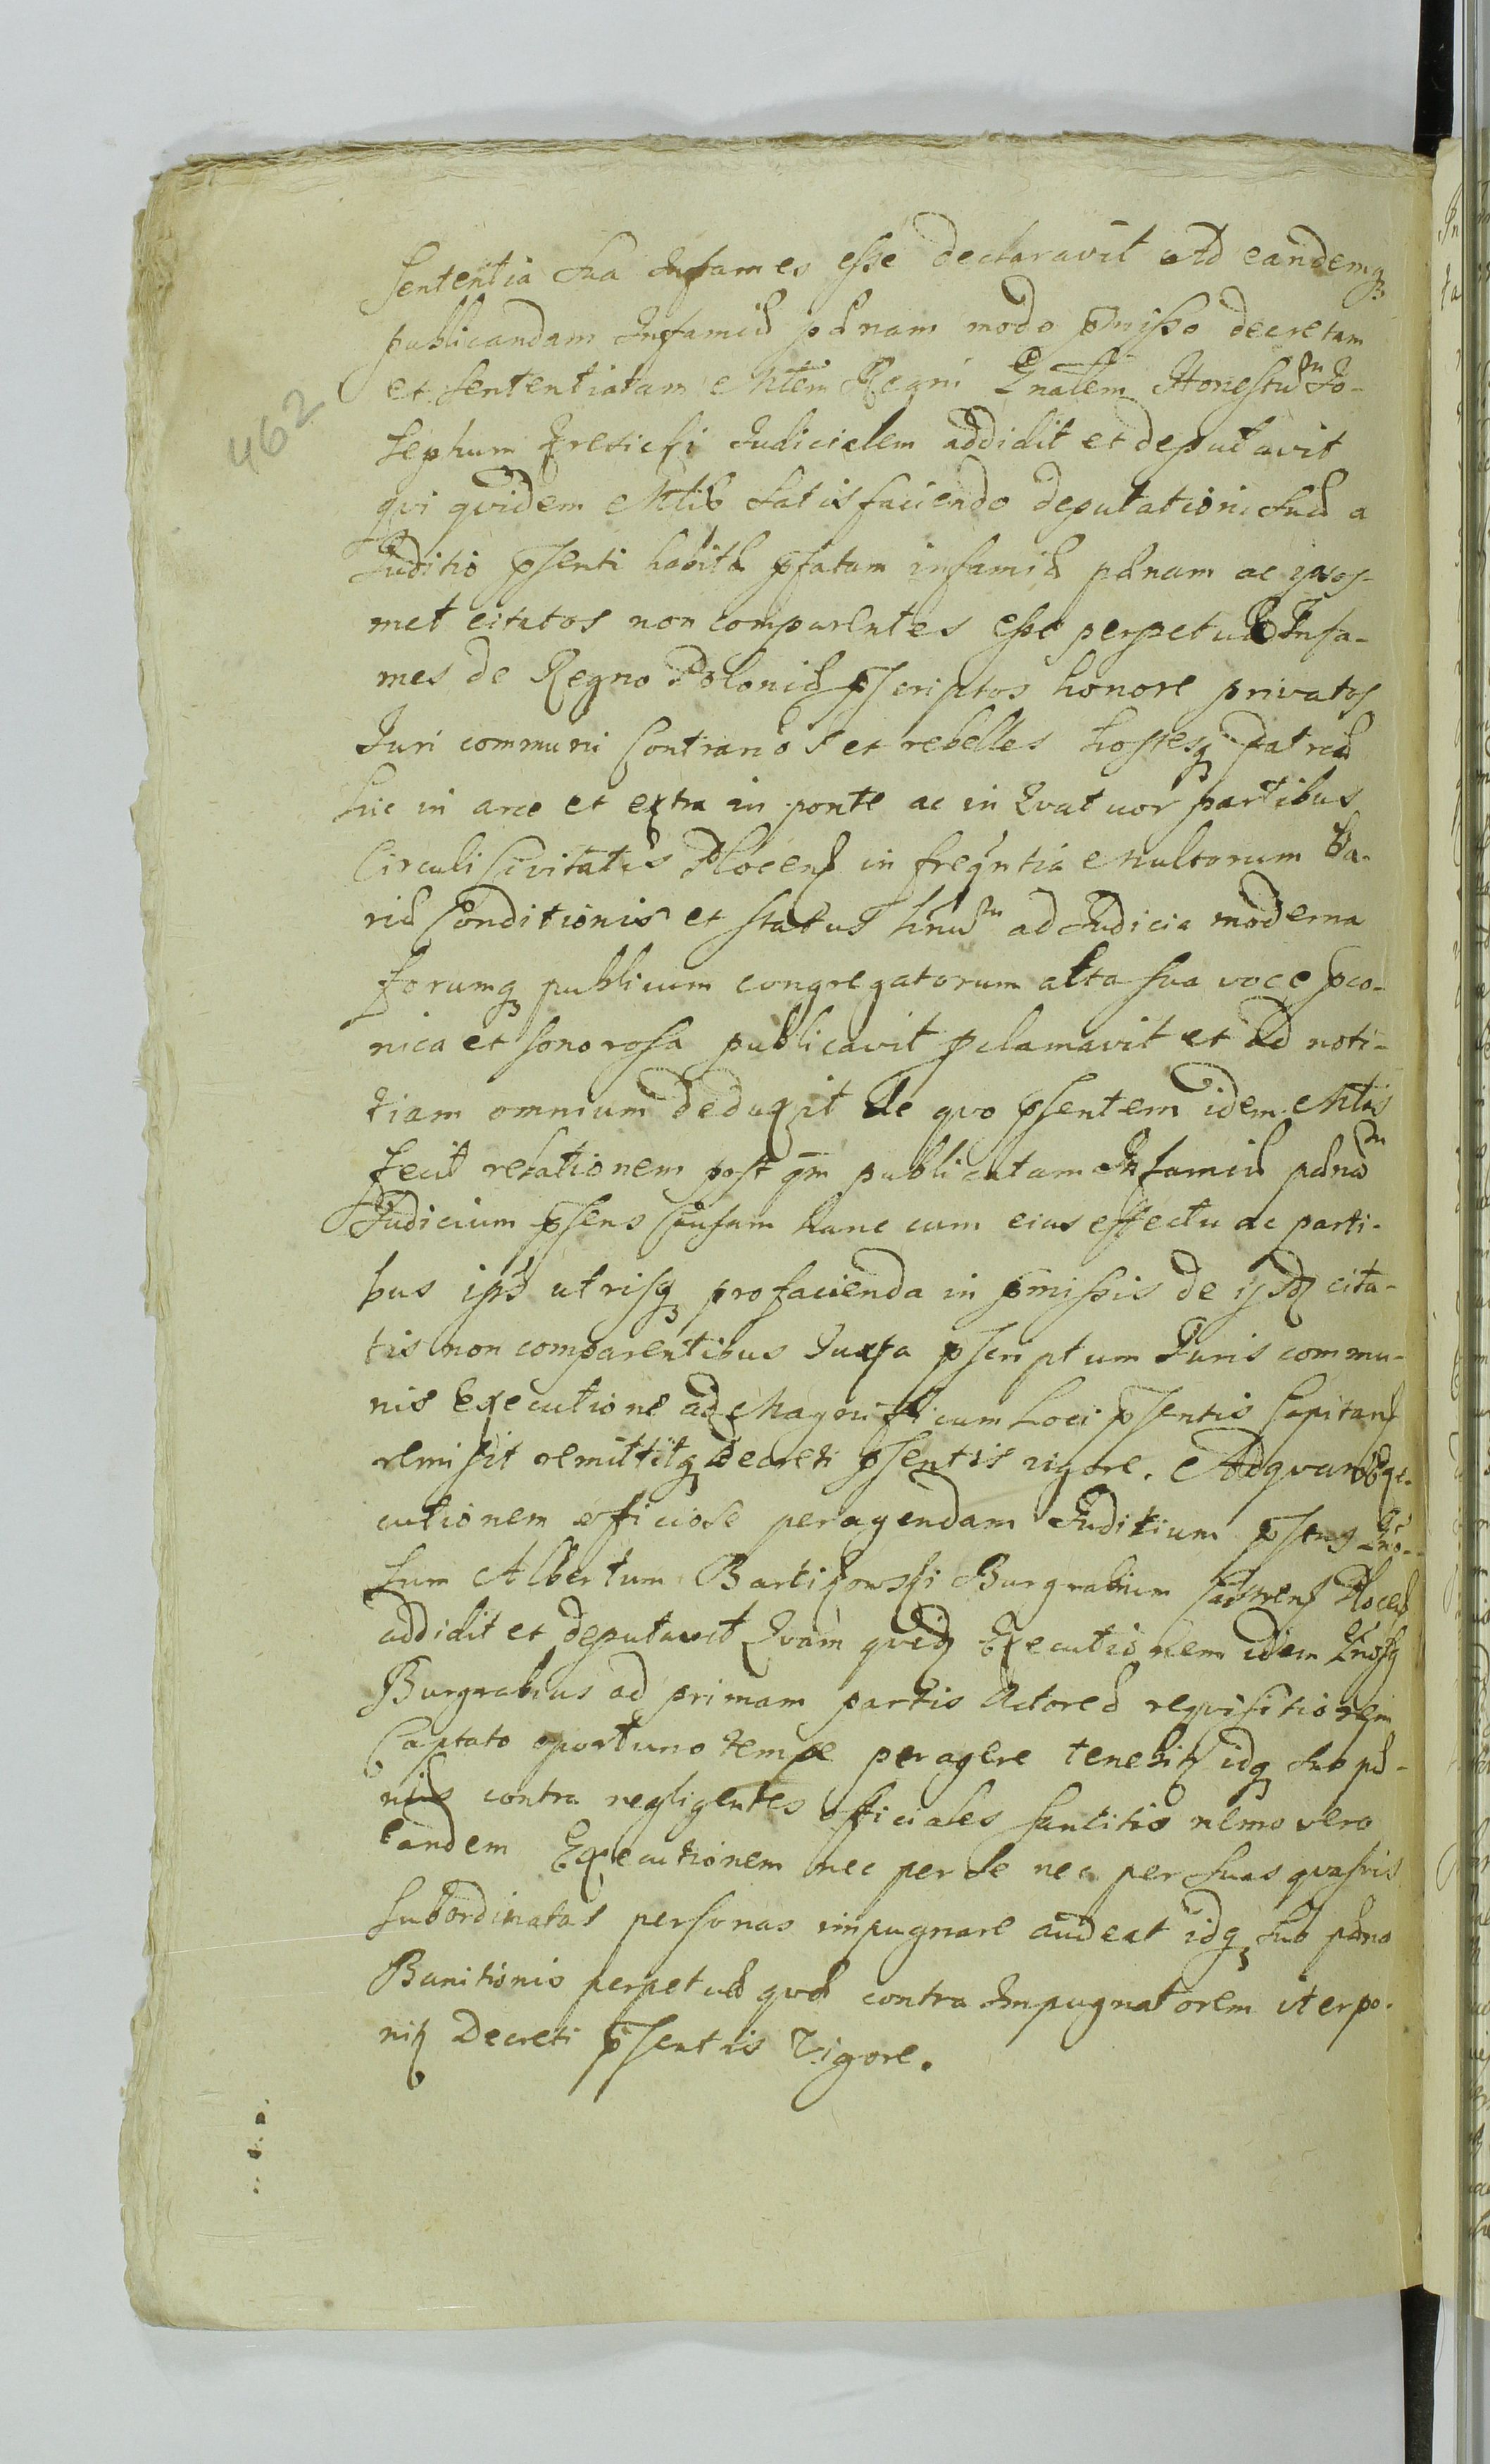 Sententia sua Infames esse declaravit Ad eandemq̃
publicandam Infamiæ pænam modo p̃misso decretam
et sententiatam Mĩtem Regni Gñalem Honestũm Jo-
sephum Kreticki Judicialem addidit et deputavit
qvi qvidem Mĩlis satisfaciendo deputationi suæ a
Juditio p̃senti habitæ p̃fatam infamiæ pænam ac ipsos-
met citatos non comparentes esse perpetuæ Infa-
mes de Regno Poloniæ p̃scriptos honore privatos
Juri communi Contrarios et rebelles hostesq̃ patriæ
hic in arce et extra in ponte ac in Qvatuor partibus
Circuli Civitatis Plocens in freq̃ntia Multorum Va-
riæ Conditionis et status hñum ad Judicia moderna
forumq̃ publicum congregatorum alta sua voce p̃co-
nica et sonorosa publicavit p̃clamavit et ad noti-
tiam omnium deduxit De qvo p̃sentem idem Mĩlis
fecit relationem post qm̃ publicatam Infamiæ pænãm
Judicium p̃sens Causam hanc cum eius effectu ac parti-
bus ips̃ utrisq̃ pro facienda in p̃missis de ijsdẽ cita-
tis non comparentibus Juxta p̃scriptum Juris commu-
nis Executione ad Magnificum Loci p̃sentis Capitan̄
remisit remittitq̃ Decreti p̃sentis vigore. Ad qvam Exe-
cutionem officiose peragendam Juditium p̃sens Gño-
sum Albertum Bartikowski Burgrabium Castren̄ Plocen̄
addidit et deputavit Qvam qvidẽ Executionem idem Gñosg
Burgrabius ad primam partis Actoreæ reqvisitionem
Captato oportuno tempe peragere tenebitr̃ idq̃ sub pæ-
nis contra negligentes officiales sancitis nemo vero
eandem Executionem nec per se nec per suas qvasvis
subordinatas personas impugnare audeat idq̃ sub pæna
Banitionis perpetuæ qvæ contra Impugnatorem iterpo-
nitr̃ Decreti p̃sentis Vigore.
462